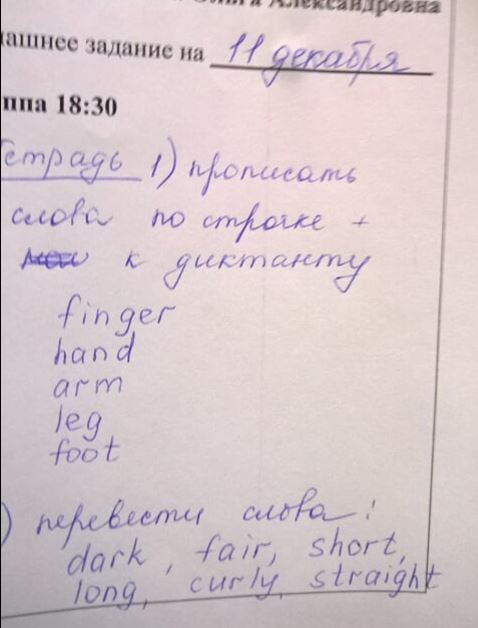 Ольга Александровна
машнее задание на 11 декабря
ппа 18:30
Тетрадь 1) прописать
слова по строчке +
к диктанту
finger
hand
arm
leg
foot
) перевести слова:
dark, fair, short,
long, curly, straight